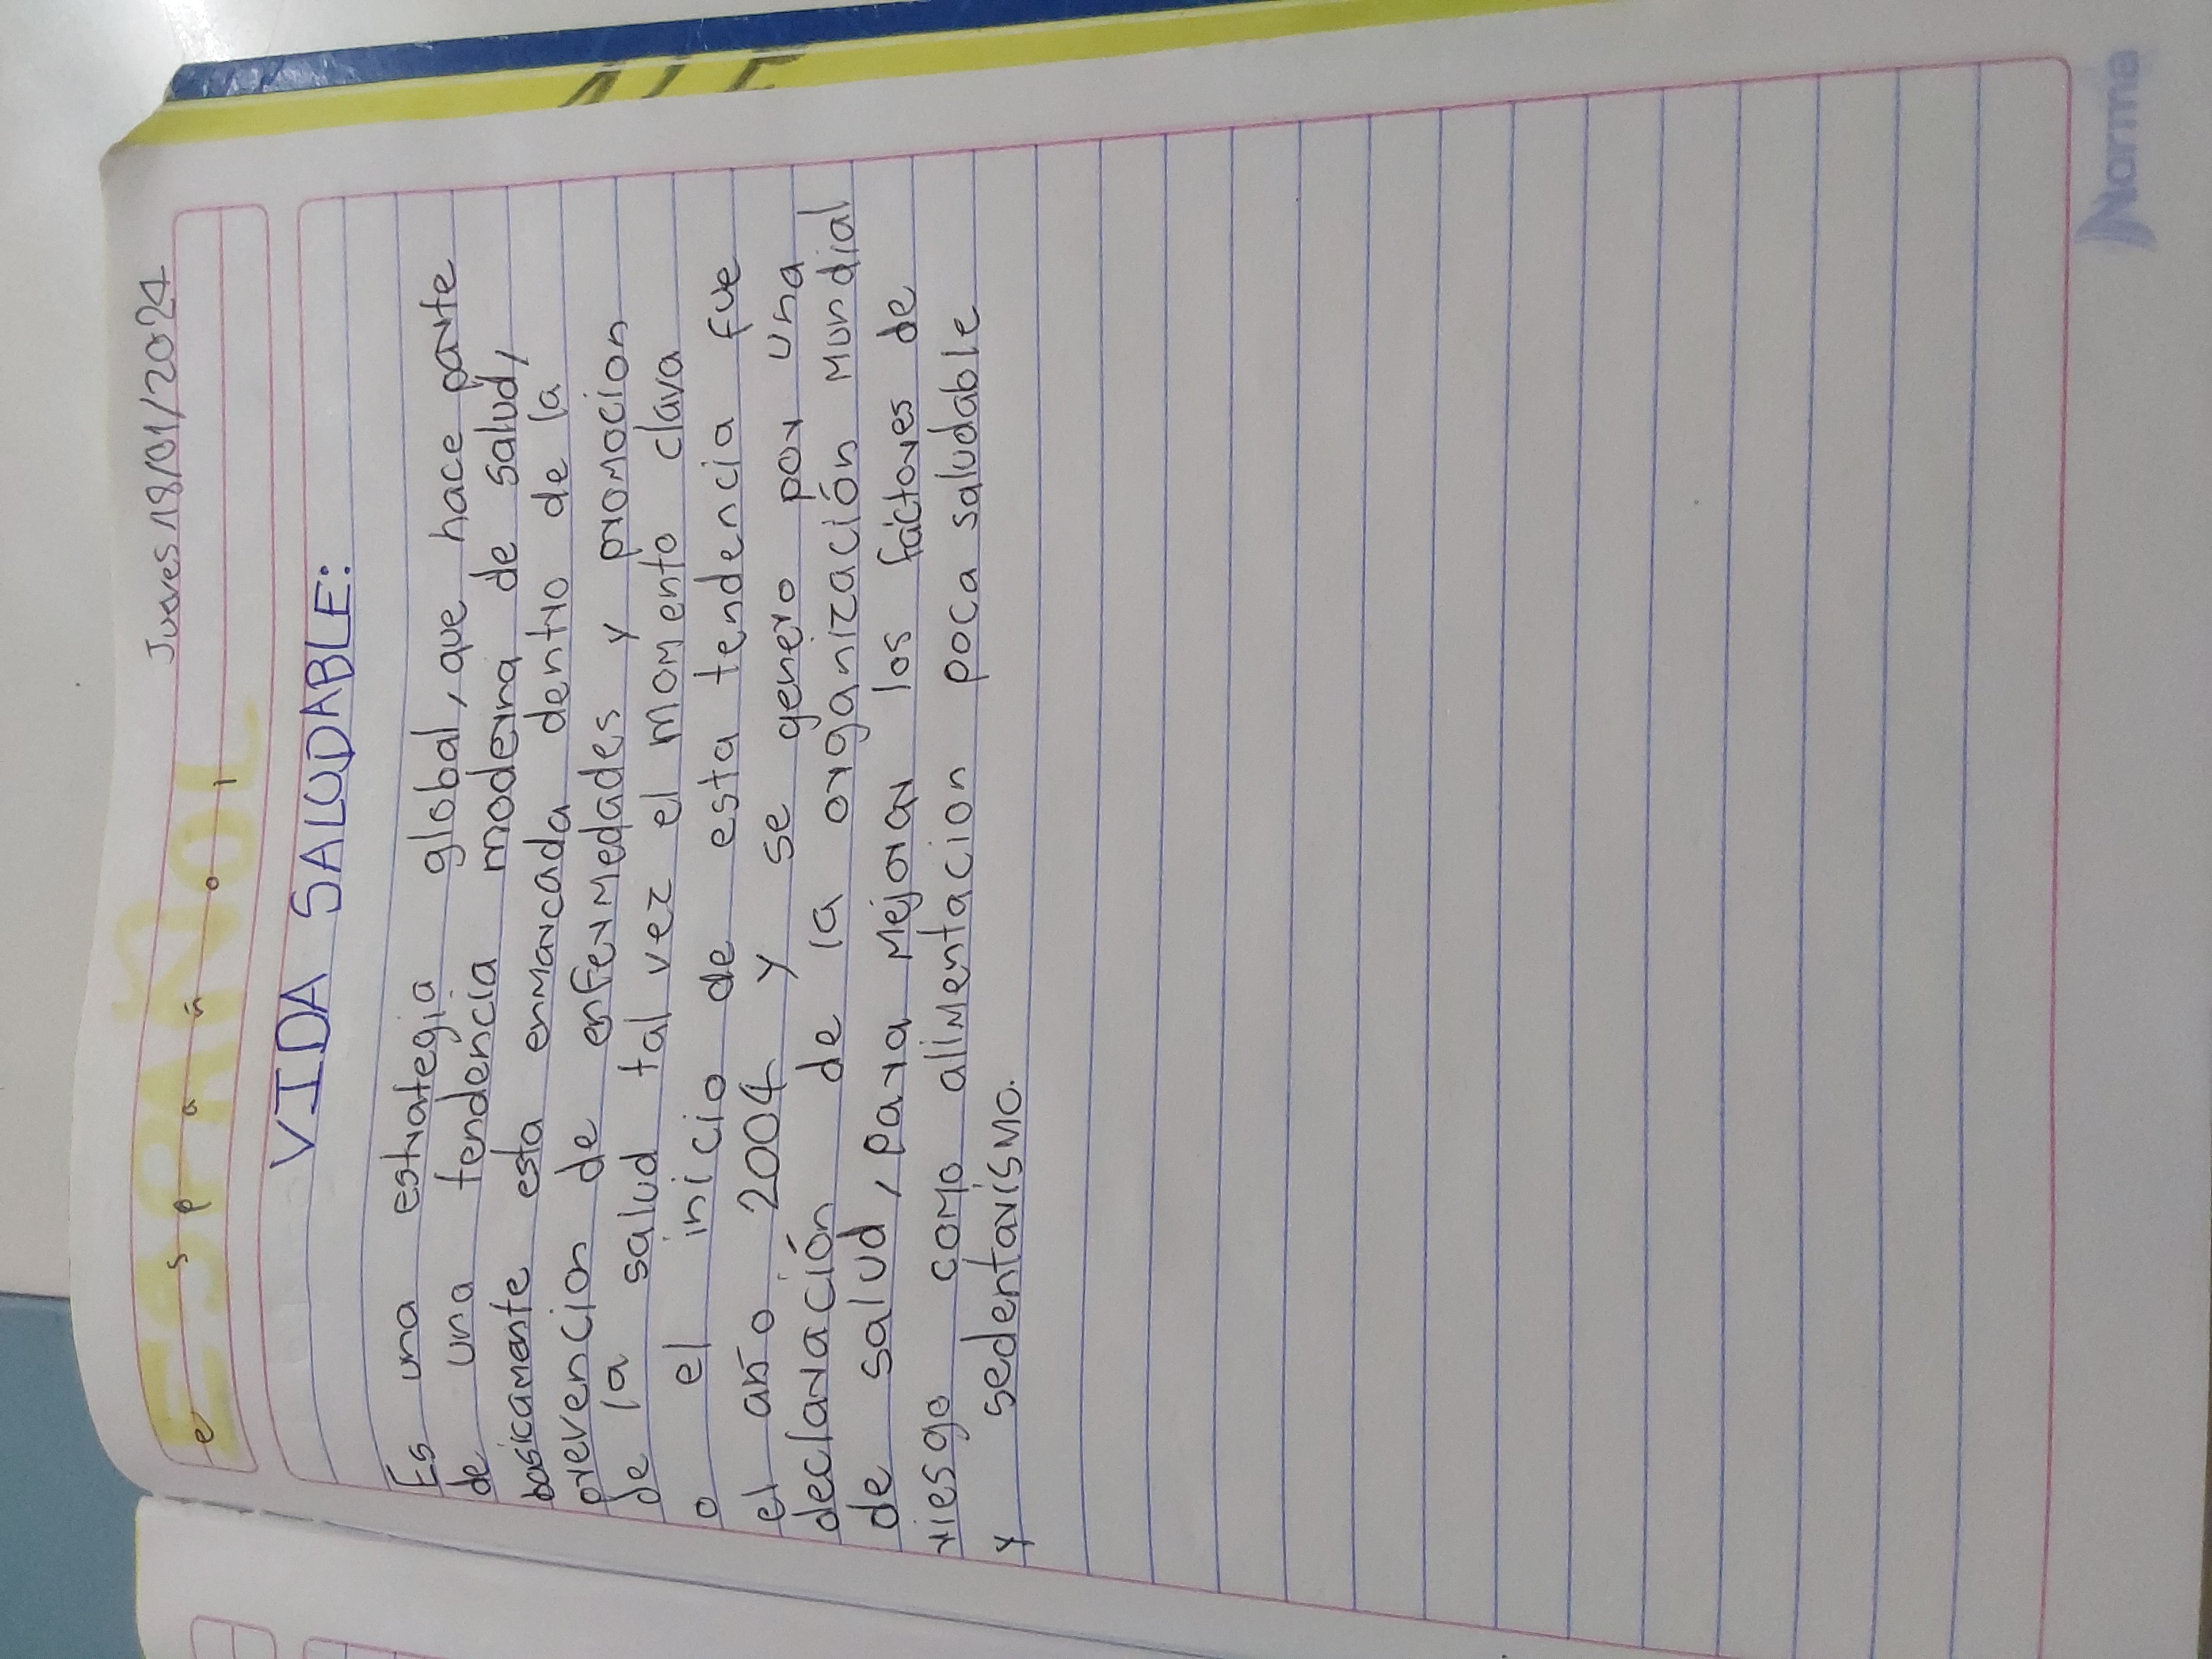 Jueves 18/01/2024
ESPAÑOL
e s p a ñ o l
VIDA SALUDABLE:
Es una estrategia global, que hace parte
de una tendencia moderna de salud,
basicamente esta enmarcada dentro de la
prevencion de enfermedades y promocion
de la salud tal vez el momento clava
o el inicio de esta tendencia fue
el año 2004 y se genero por una
declaración de la organización Mundial
de salud, para Mejorar los factores de
riesgo como alimentacion poca saludable
y sedentarismo.
Norma